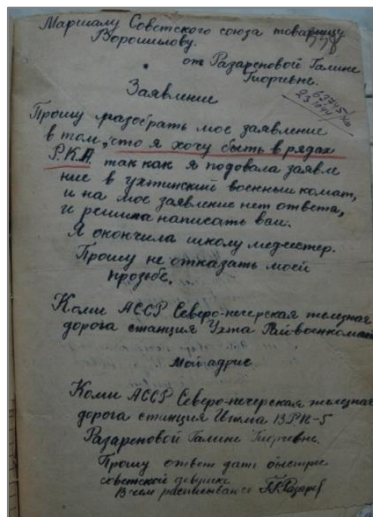 Маршалу Советского союза товарищу
Ворошилову.
от Разареновой Галине
Георгевне.
Заявление
Прошу разобрать мое заявление
в том, что я хочу быть в рядах
Р.К.А. так как я подовала заявле
ние в ухтинский военный комат,
и на мое заявление нет ответа,
и решила написать вам.
Я окончила школу медсестер.
Прошу не отказать моей
прозьбе.
Коми АССР Северо-печерская железная
дорога станция Ухта Райвоенкомат
Мой адрес
Коми АССР Северо-печерская железная
дорога станция Ижма ВРК-5
Разареновой Галине Георгевне.
Прошу ответ дать быстрее
советской девушке
В чем расписываюсь